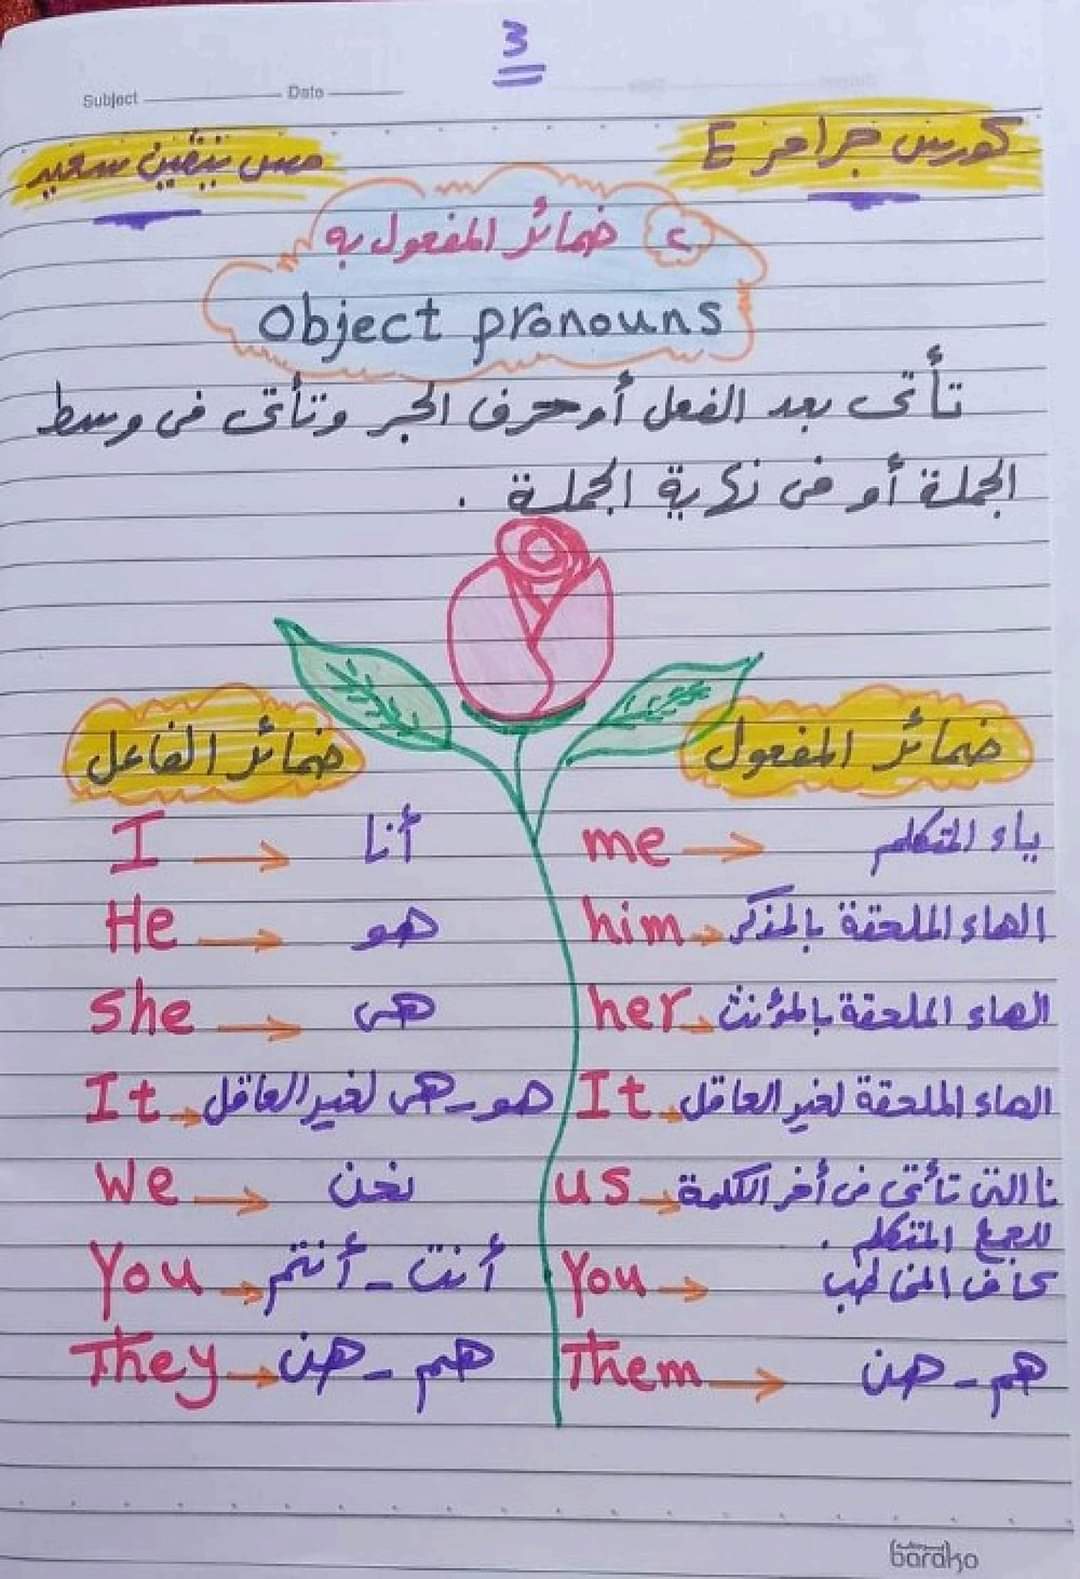 3
Subject Date
كورس جرامر E
مس نيفين سعيد
٢ ضمائر المفعول به
Object pronouns
تأتى بعد الفعل أو حرف الجر وتأتى فى وسط
الجملة أو فى نهاية الجملة .
ضمائر الفاعل ضمائر المفعول
I → أنا me → ياء المتكلم
He → هو him → الهاء الملحقة بالمذكر
she → هى her → الهاء الملحقة بالمؤنث
It → هو - هى لغير العاقل It → الهاء الملحقة لغير العاقل
We → نحن us → نا التى تأتى فى أخر الكلمة
للجمع المتكلم .
You → أنت - أنتم You → كاف المخاطب
They → هم - هن Them → هم - هن
barako